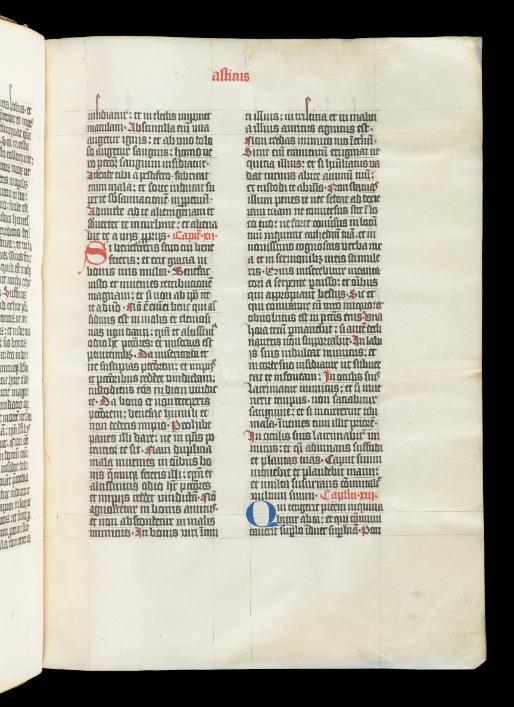 asticus
insidiatur: et in electis imponet
maculam. Ab scintilla eni una
augetur ignis: et ab uno dolo
so augetur sanguis: homo ve
ro pctor sanguini insidiatur.
Attende tibi a pestifero. fabricat
enim mala: et forte inducat su
per te subsannatione in ppetuu.
Admitte ad te alienigenam et
subuertet te in turbine: et aliena
bit te a viis ppriis. Capm .xii.
Si benefeceris scito cui bene
feceris: et erit gratia in
bonis tuis multa. Benefac
iusto et inuenies retributione
magnam: et si non ab ipso cer
te a dno. No e eni ei bene qui as
siduus est in malis et elemosi
nas non danti: qm et altissimus
odio hz pctores: et misertus est
penitentibz. Da misericordi et
ne suscipias pctorem: et impiis
et pctoribus reddet vindictam:
custodiens eos in diem vindic
te. Da bono et non receperis
pctorem: benefac humili et
non dederis impio. Prohibe
panes illi dare: ne in ipsis po
tentior te sit. Nam duplicia
mala inuenies in omibus bo
nis quecuqz feceris illi: qm et
altissimus odio hz pctores:
et impiis reddet vindicta. No
agnoscetur in bonis amicus:
et non abscondetur in malis
inimicus. In bonis viri inimi
ci illius: in tristicia et in malici
a illius amicus agnitus est.
Non credas inimico tuo in eternu.
Sicut eni eramentu eruginat ne
quitia illius: et si humiliatus va
dat curuus abice animu tuu:
et custodi te ab illo. Non statuas
illum penes te nec sedeat ad dexte
ram tuam: ne conuersus stet i lo
co tuo: ne forte conuersus in locu
tuu inquirat cathedra tua: et in
nouissimo cognoscas verba me
a et in sermonibz meis stimule
ris. Quis miserebitur incanta
tori a serpente percusso: et omibus
qui appropiant bestiis. Sic et
qui comitatur cu viro iniquo: et
obuolutus est in pctis eius. Una
hora tecu pmanebit: si aute decli
naueris non supportabit. In labi
is suis indulcat inimicus: et
in corde suo insidiatur ut subuer
tat te in foueam. In oculis suis
lacrimatur inimicus: et si inue
nerit tempus. non saciabitur
sanguine: et si incurrerint tibi
mala. inuenies eum illic priore.
In oculis suis lacrimatur ini
micus: et qsi adiuuans suffodi
et plantas tuas. Caput suum
mouebit et plaudebit manu:
et multa susurrans comutabit
vultum suum. Caplm .xiii.
Qui tetigerit picem inquina
bitur ab ea: et qui comuni
cauerit supbo induet supbia. Pon